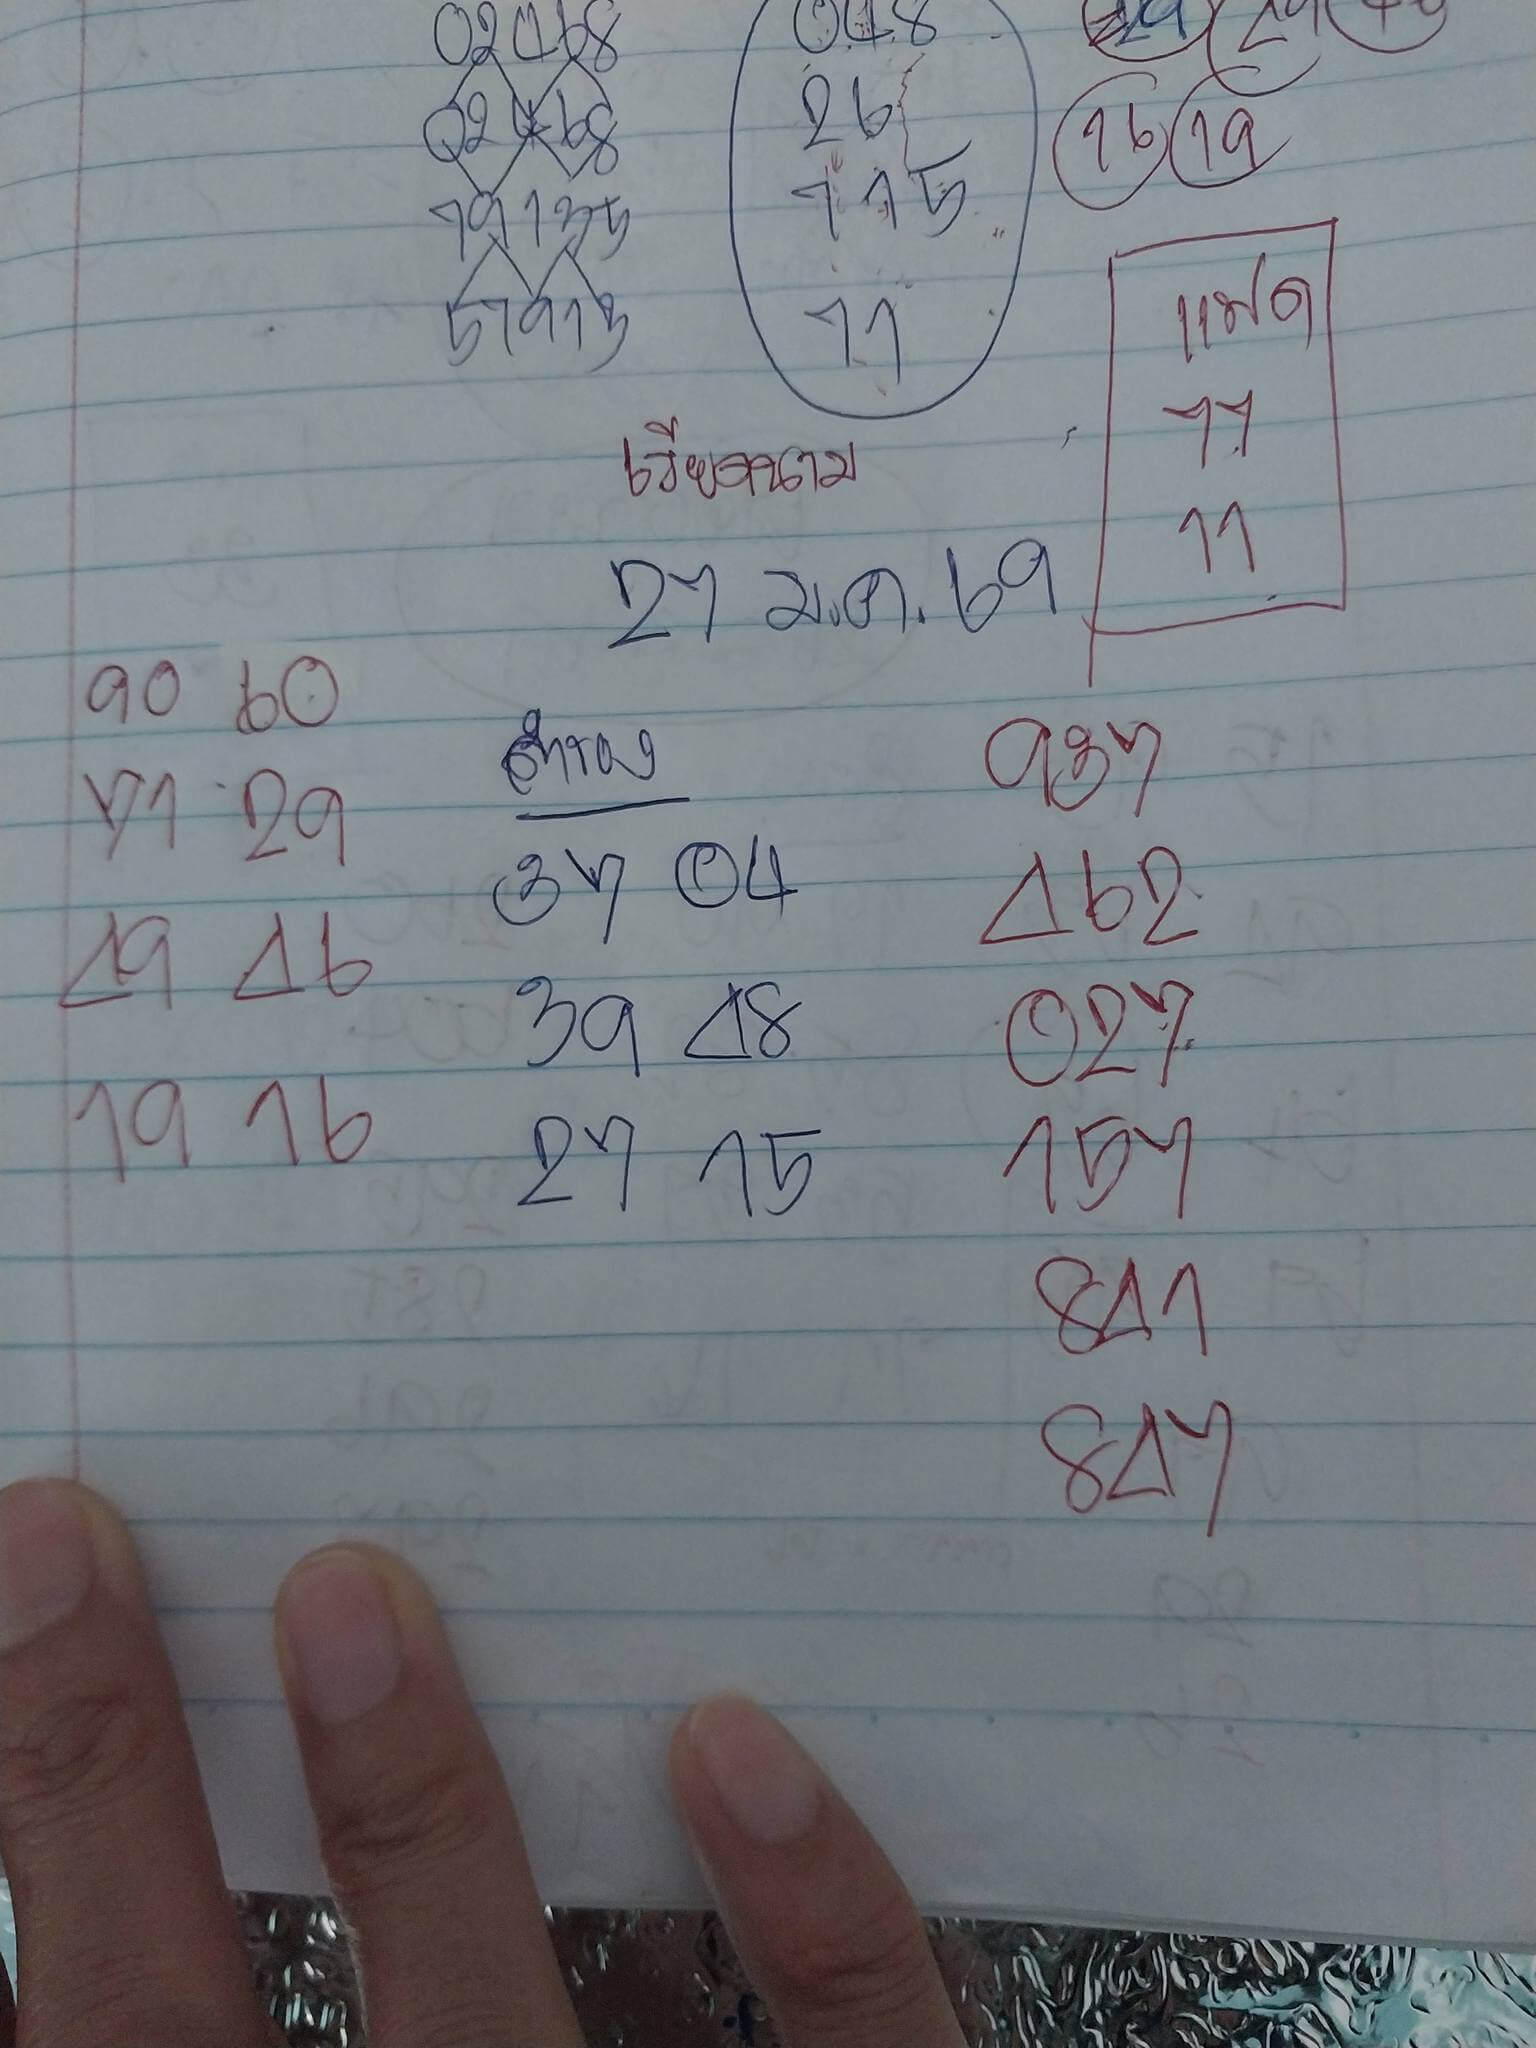 02468
02468
79135
57913
048
26
775
77
29
16 19
แฝด
77
11
เวียดนาม
27 ม.ค. 69
90 60
71 29
49 46
19 16
สำรอง
37 04
39 48
27 15
937
462
027
157
841
847